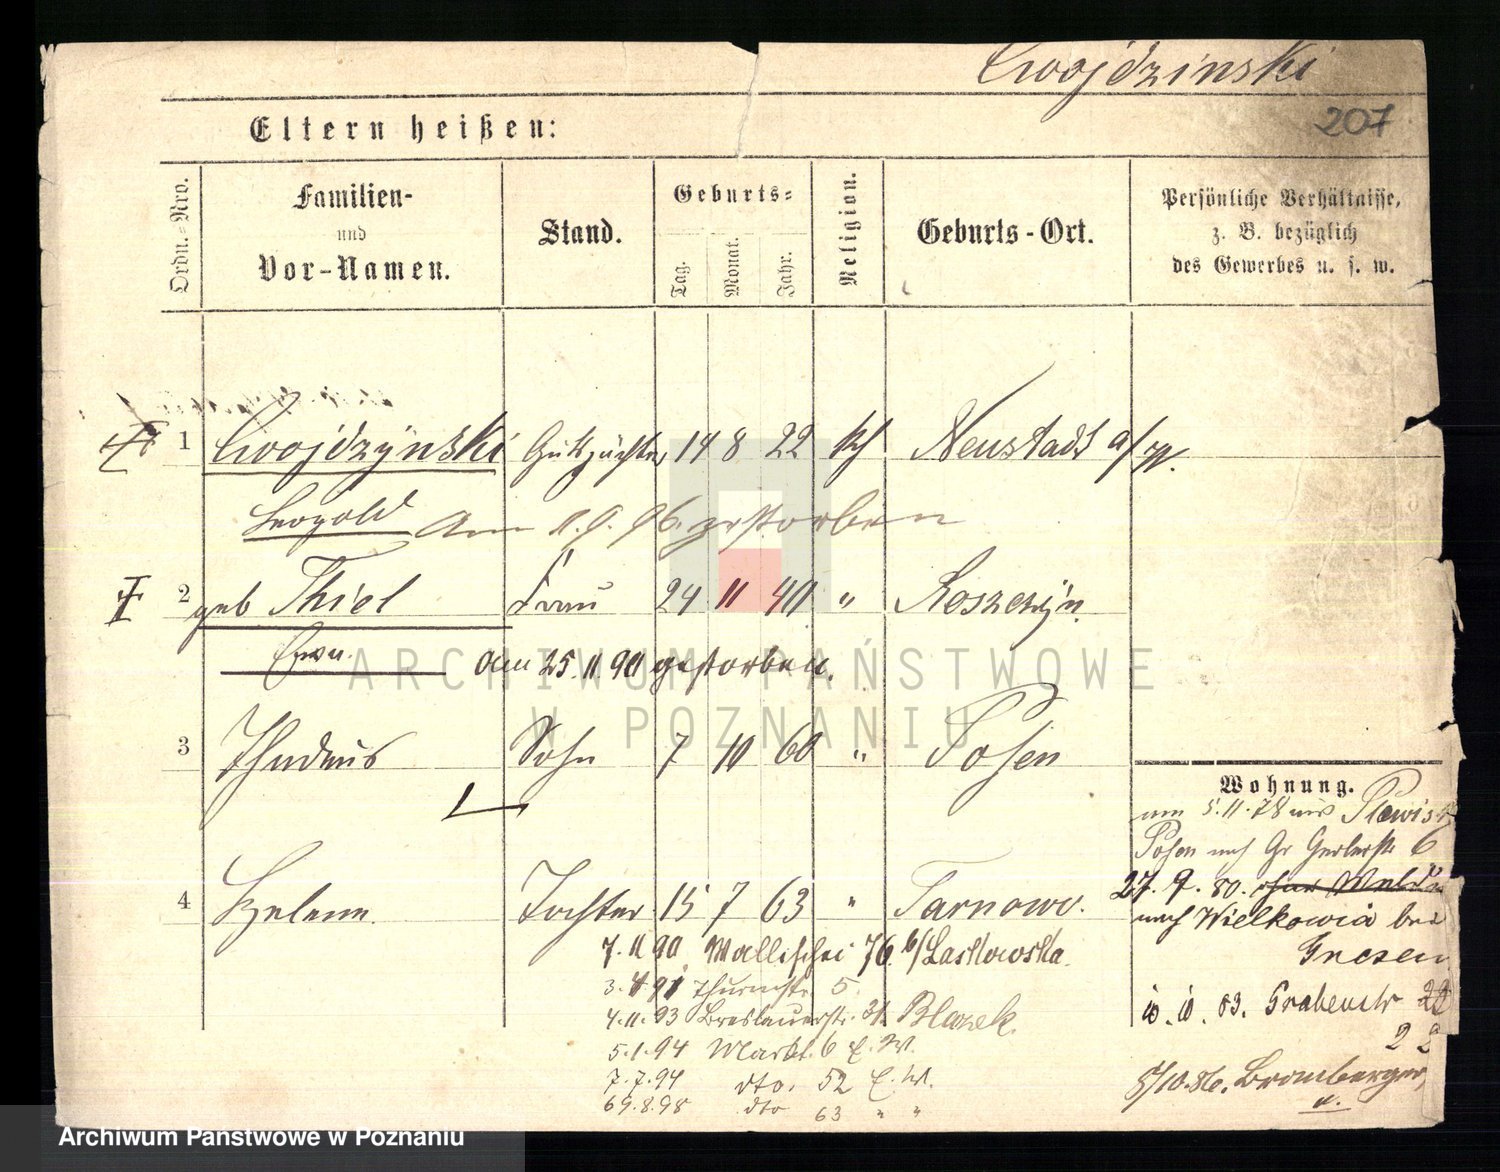 Cwojdzinski
207
Eltern heißen:
Ordn.-Nro.
Familien-
und
Vor-Namen.
Stand.
Geburts-
Tag.
Monat.
Jahr.
Religion.
Geburts-Ort.
Persönliche Verhältnisse,
z. B. bezüglich
des Gewerbes u. s. w.
1 Cwojdzynski Gutspächter 14 8 22 kth Neustadt a/W.
Leopold am gestorben
2 geb Thiel Frau 24 11 40 " Koszczyn
am 25.11.90 gestorben.
3 Thadeus Sohn 7 10 60 " Posen
4 Helene Tochter 15 7 63 " Tarnowo.
7.11.90 Wallischei 76 b/Laskowska
3.4.91 Thurmstr. 5.
4.11.93 Breslauerstr. 31. Blazek.
5.1.94 Markt. 6 E. W.
7.7.94 dto. 52 E. W.
8.98 dto 63 " "
Wohnung.
am 5.11.78 aus Plewisk
Posen nach Gr Gerberstr 6
27.9.80. ohne Meld
nach Wielkowia bei
Gnesen
83. Grabenstr
5/10.86. Bromberger
ARCHIWUM PAŃSTWOWE
W POZNANIU
Archiwum Państwowe w Poznaniu